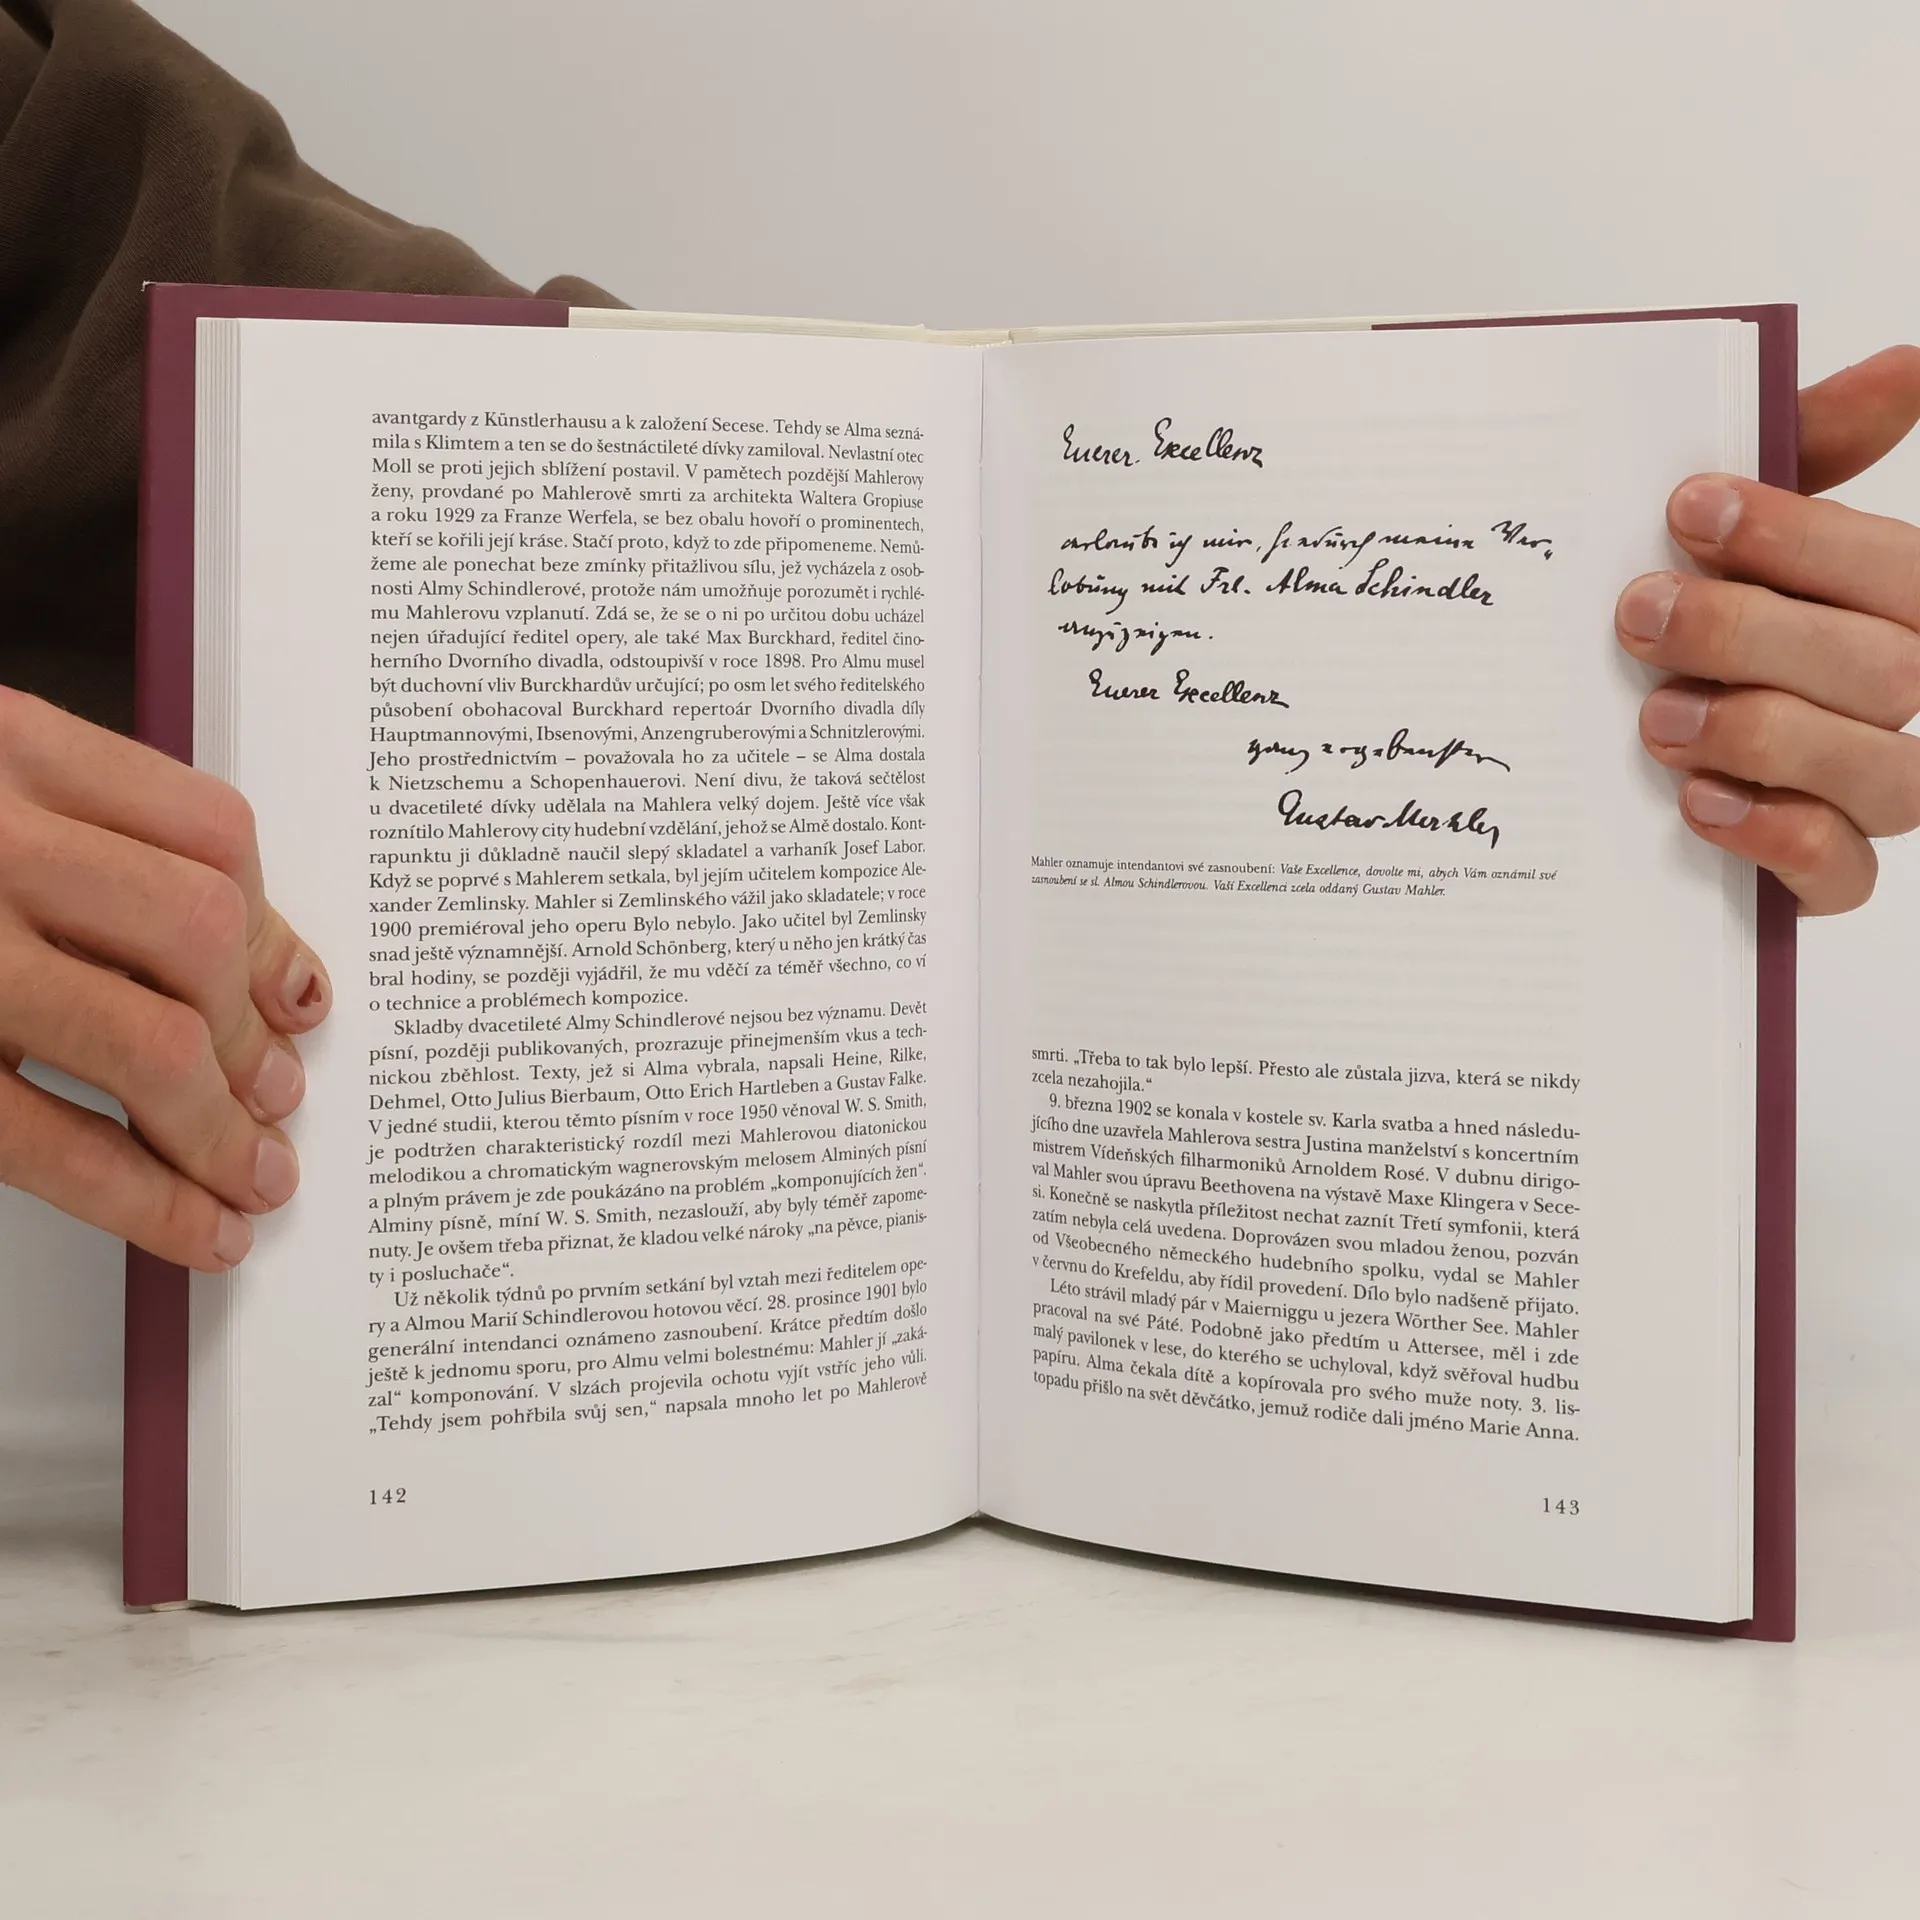 avantgardy z Künstlerhausu a k založení Secese. Tehdy se Alma sezná-
mila s Klimtem a ten se do šestnáctileté dívky zamiloval. Nevlastní otec
Moll se proti jejich sblížení postavil. V pamětech pozdější Mahlerovy
ženy, provdané po Mahlerově smrti za architekta Waltera Gropiuse
a roku 1929 za Franze Werfela, se bez obalu hovoří o prominentech,
kteří se kořili její kráse. Stačí proto, když to zde připomeneme. Nemů-
žeme ale ponechat beze zmínky přitažlivou sílu, jež vycházela z osob-
nosti Almy Schindlerové, protože nám umožňuje porozumět i rychlé-
mu Mahlerovu vzplanutí. Zdá se, že se o ni po určitou dobu ucházel
nejen úřadující ředitel opery, ale také Max Burckhard, ředitel čino-
herního Dvorního divadla, odstoupivší v roce 1898. Pro Almu musel
být duchovní vliv Burckhardův určující; po osm let svého ředitelského
působení obohacoval Burckhard repertoár Dvorního divadla díly
Hauptmannovými, Ibsenovými, Anzengruberovými a Schnitzlerovými.
Jeho prostřednictvím – považovala ho za učitele – se Alma dostala
k Nietzschemu a Schopenhauerovi. Není divu, že taková sečtělost
u dvacetileté dívky udělala na Mahlera velký dojem. Ještě více však
roznítilo Mahlerovy city hudební vzdělání, jehož se Almě dostalo. Kont-
rapunktu ji důkladně naučil slepý skladatel a varhaník Josef Labor.
Když se poprvé s Mahlerem setkala, byl jejím učitelem kompozice Ale-
xander Zemlinsky. Mahler si Zemlinského vážil jako skladatele; v roce
1900 premiéroval jeho operu Bylo nebylo. Jako učitel byl Zemlinsky
snad ještě významnější. Arnold Schönberg, který u něho jen krátký čas
bral hodiny, se později vyjádřil, že mu vděčí za téměř všechno, co ví
o technice a problémech kompozice.
Skladby dvacetileté Almy Schindlerové nejsou bez významu. Devět
písní, později publikovaných, prozrazuje přinejmenším vkus a tech-
nickou zběhlost. Texty, jež si Alma vybrala, napsali Heine, Rilke,
Dehmel, Otto Julius Bierbaum, Otto Erich Hartleben a Gustav Falke.
V jedné studii, kterou těmto písním v roce 1950 věnoval W. S. Smith,
je podtržen charakteristický rozdíl mezi Mahlerovou diatonickou
melodikou a chromatickým wagnerovským melosem Alminých písní
a plným právem je zde poukázáno na problém „komponujících žen“.
Alminy písně, míní W. S. Smith, nezaslouží, aby byly téměř zapome-
nuty. Je ovšem třeba přiznat, že kladou velké nároky „na pěvce, pianis-
ty i posluchače“.
Už několik týdnů po prvním setkání byl vztah mezi ředitelem ope-
ry a Almou Marií Schindlerovou hotovou věcí. 28. prosince 1901 bylo
generální intendanci oznámeno zasnoubení. Krátce předtím došlo
ještě k jednomu sporu, pro Almu velmi bolestnému: Mahler jí „zaká-
zal“ komponování. V slzách projevila ochotu vyjít vstříc jeho vůli.
„Tehdy jsem pohřbila svůj sen,“ napsala mnoho let po Mahlerově
142
Euerer Excellenz
erlaube ich mir, hiedurch meine Ver-
lobung mit Frl. Alma Schindler
anzuzeigen.
Euerer Excellenz
ganz ergebenster
Gustav Mahler
Mahler oznamuje intendantovi své zasnoubení: Vaše Excellence, dovolte mi, abych Vám oznámil své
zasnoubení se sl. Almou Schindlerovou. Vaší Excellenci zcela oddaný Gustav Mahler.
smrti. „Třeba to tak bylo lepší. Přesto ale zůstala jizva, která se nikdy
zcela nezahojila.“
9. března 1902 se konala v kostele sv. Karla svatba a hned následu-
jícího dne uzavřela Mahlerova sestra Justina manželství s koncertním
mistrem Vídeňských filharmoniků Arnoldem Rosé. V dubnu dirigo-
val Mahler svou úpravu Beethovena na výstavě Maxe Klingera v Sece-
si. Konečně se naskytla příležitost nechat zaznít Třetí symfonii, která
zatím nebyla celá uvedena. Doprovázen svou mladou ženou, pozván
od Všeobecného německého hudebního spolku, vydal se Mahler
v červnu do Krefeldu, aby řídil provedení. Dílo bylo nadšeně přijato.
Léto strávil mladý pár v Maierniggu u jezera Wörther See. Mahler
pracoval na své Páté. Podobně jako předtím u Attersee, měl i zde
malý pavilonek v lese, do kterého se uchyloval, když svěřoval hudbu
papíru. Alma čekala dítě a kopírovala pro svého muže noty. 3. lis-
topadu přišlo na svět děvčátko, jemuž rodiče dali jméno Marie Anna.
143